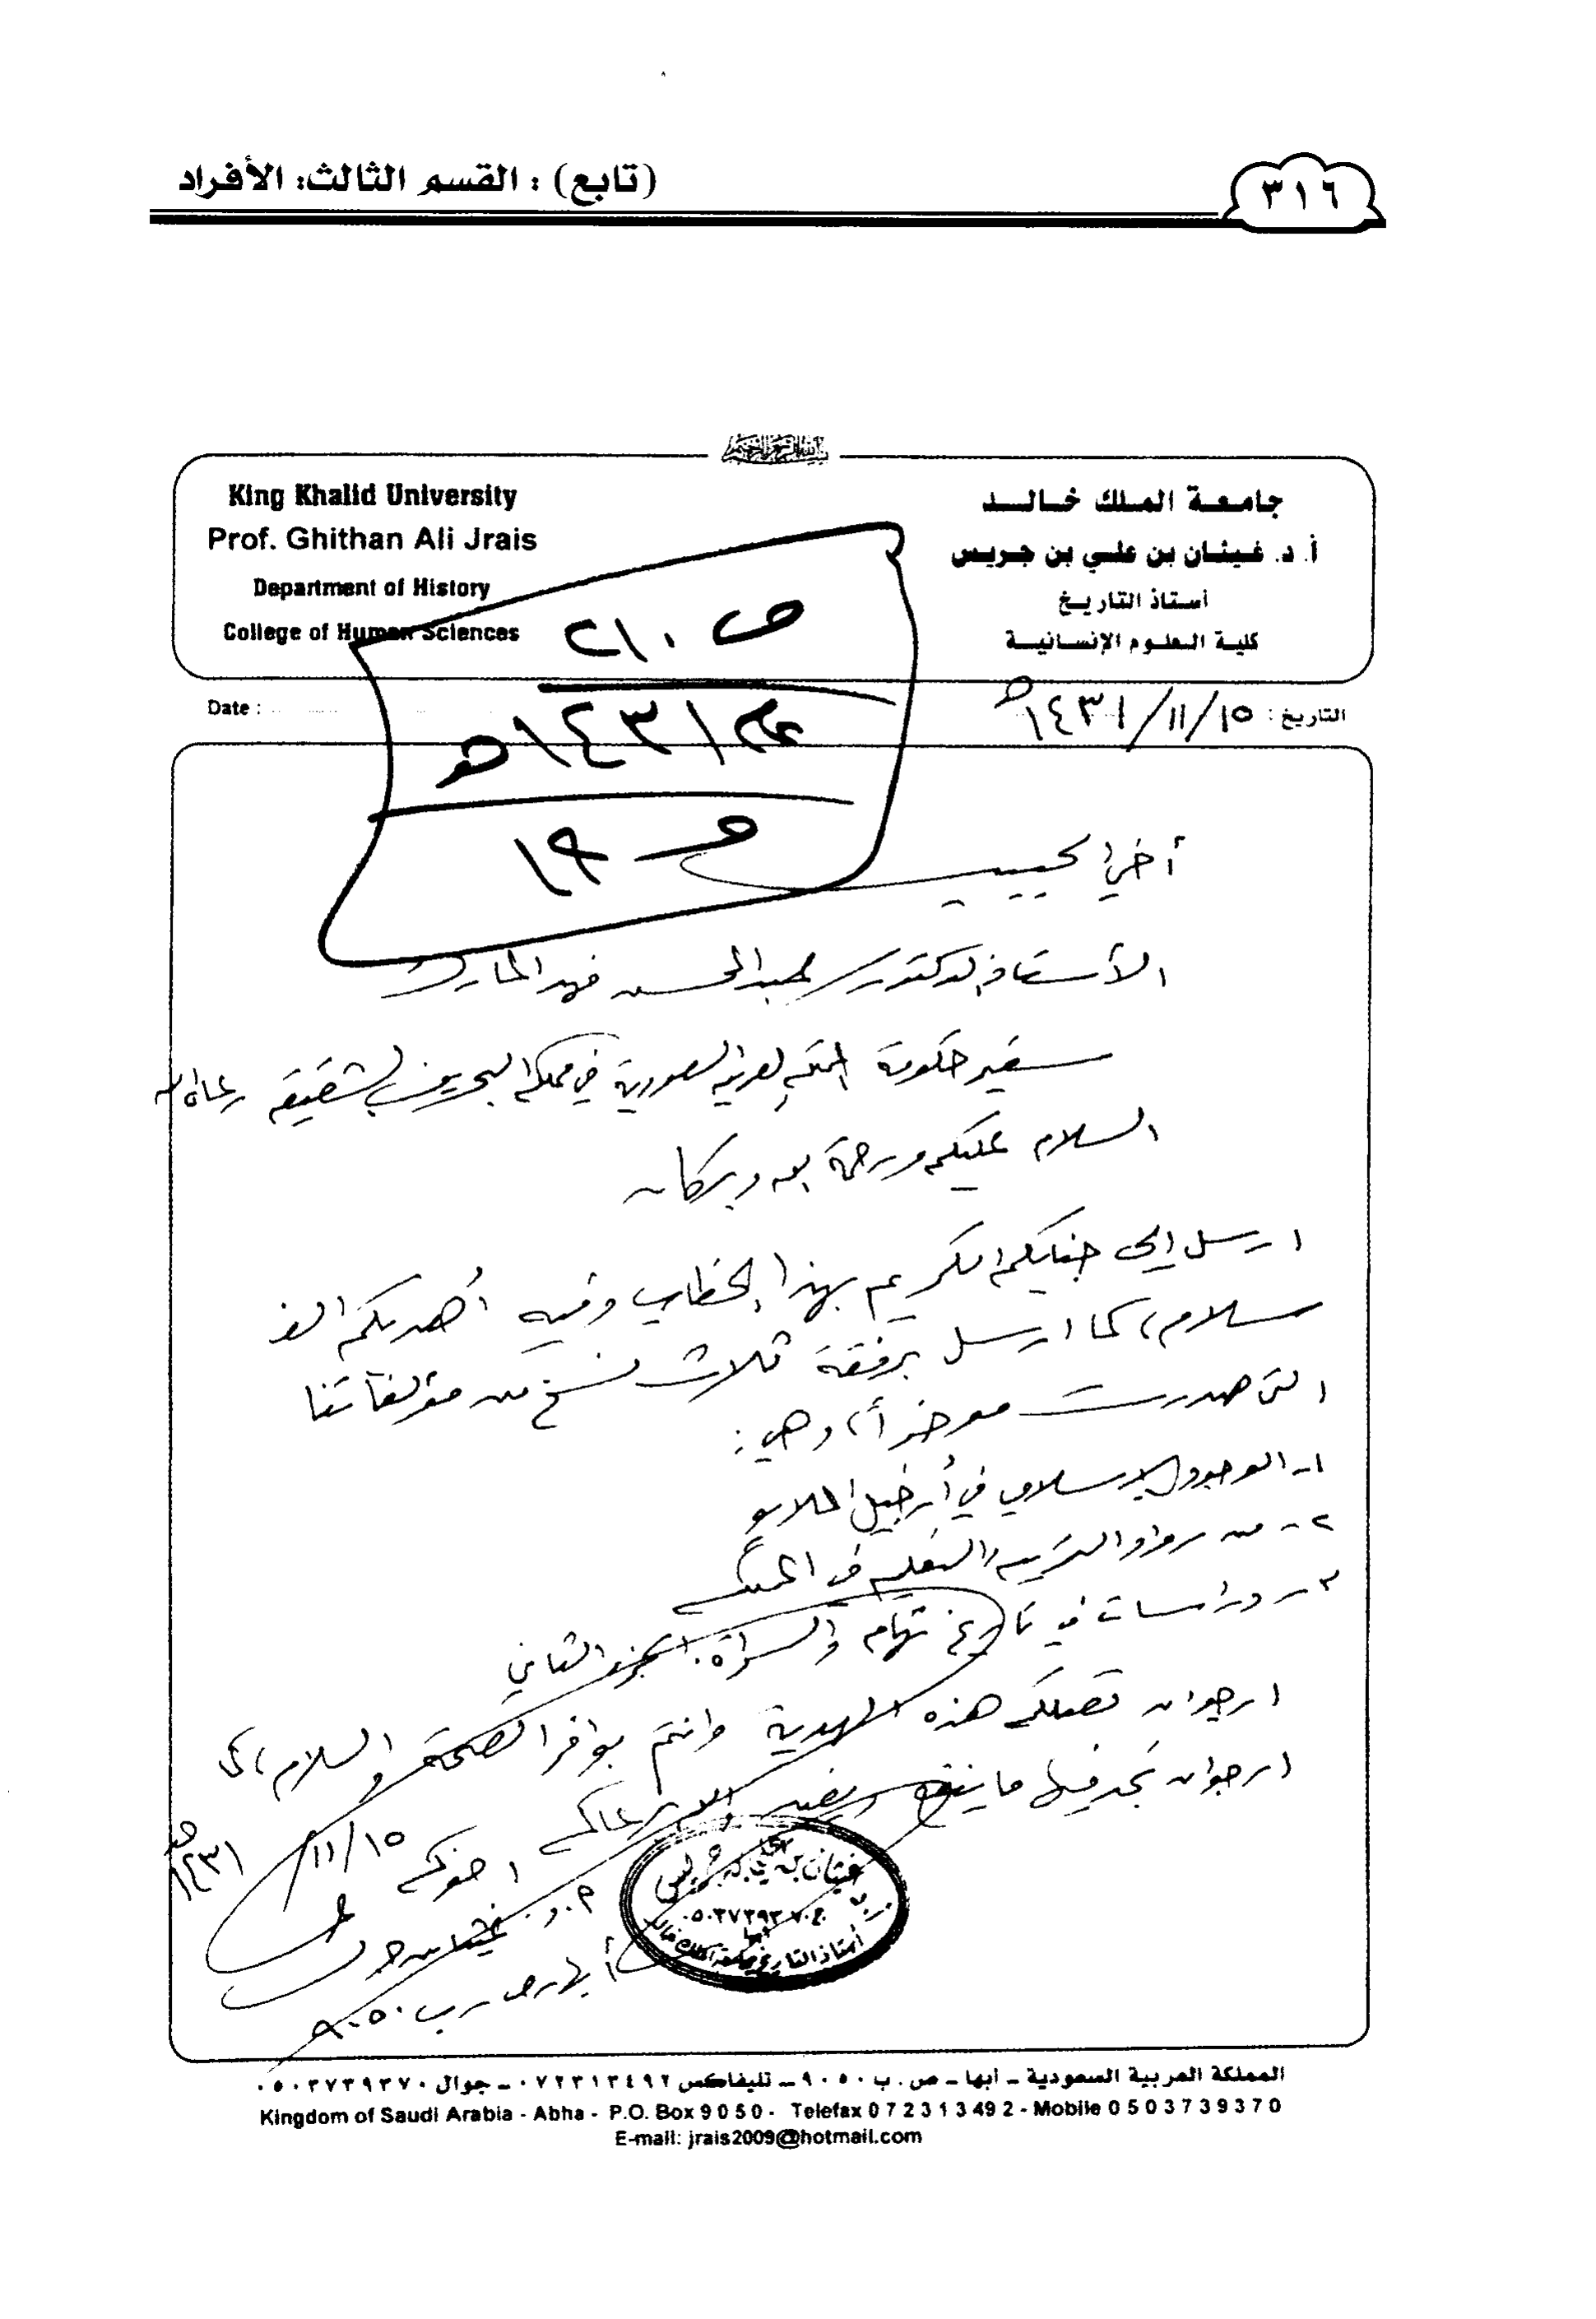 (تابع) : القسم الثالث: الأفراد
٣١٦
King Khalid University
Prof. Ghithan Ali Jrais
Department of History
College of Human Sciences
جامعة الملك خالد
أ. د. غيثان بن علي بن جريس
أستاذ التاريخ
كلية العلوم الإنسانية
Date :
التاريخ : ١٥/١١/١٤٣١هـ
ص ٢١٠
عام ١٤٣١هـ
١٩
أخي الحبيب
الأستاذ الدكتور عبدالمحسن فهد المارك
سفير حكومة المملكة العربية السعودية في مملكة البحرين الشقيقة رعاه الله
السلام عليكم ورحمة الله وبركاته
ارسل إلى جنابكم الكريم بهذا الخطاب وفيه أهديكم الف
سلام، كما ارسل برفقة ثلاث نسخ من مؤلفاتنا
التي صدرت مؤخراً، وهي:
١- الوجود الإسلامي في أرخبيل الملايو
٢- من رواد التربية والتعليم في المملكة
٣- دراسات في تاريخ تهامة والسراة. الجزء الثاني
ارجو ان تصلكم هذه الهدية وانتم بوافر الصحة والسلام، كما
ارجو ان تجد فيها ما ينفع ويفيد والله يرعاكم
اخوكم ١٥/١١/١٤٣١هـ
أ. د. غيثان بن جريس
أبها ص ب ٩٠٥٠
غيثان بن علي بن جريس
أستاذ التاريخ بجامعة الملك خالد
المملكة العربية السعودية - أبها - ص. ب ٩٠٥٠ - تليفاكس ٠٧٢٣١٣٤٩٢ - جوال ٠٥٠٣٧٣٩٣٧٠
Kingdom of Saudi Arabia - Abha - P.O. Box 9 0 5 0 - Telefax 0 7 2 3 1 3 49 2 - Mobile 0 5 0 3 7 3 9 3 7 0
E-mail: jrais2009@hotmail.com